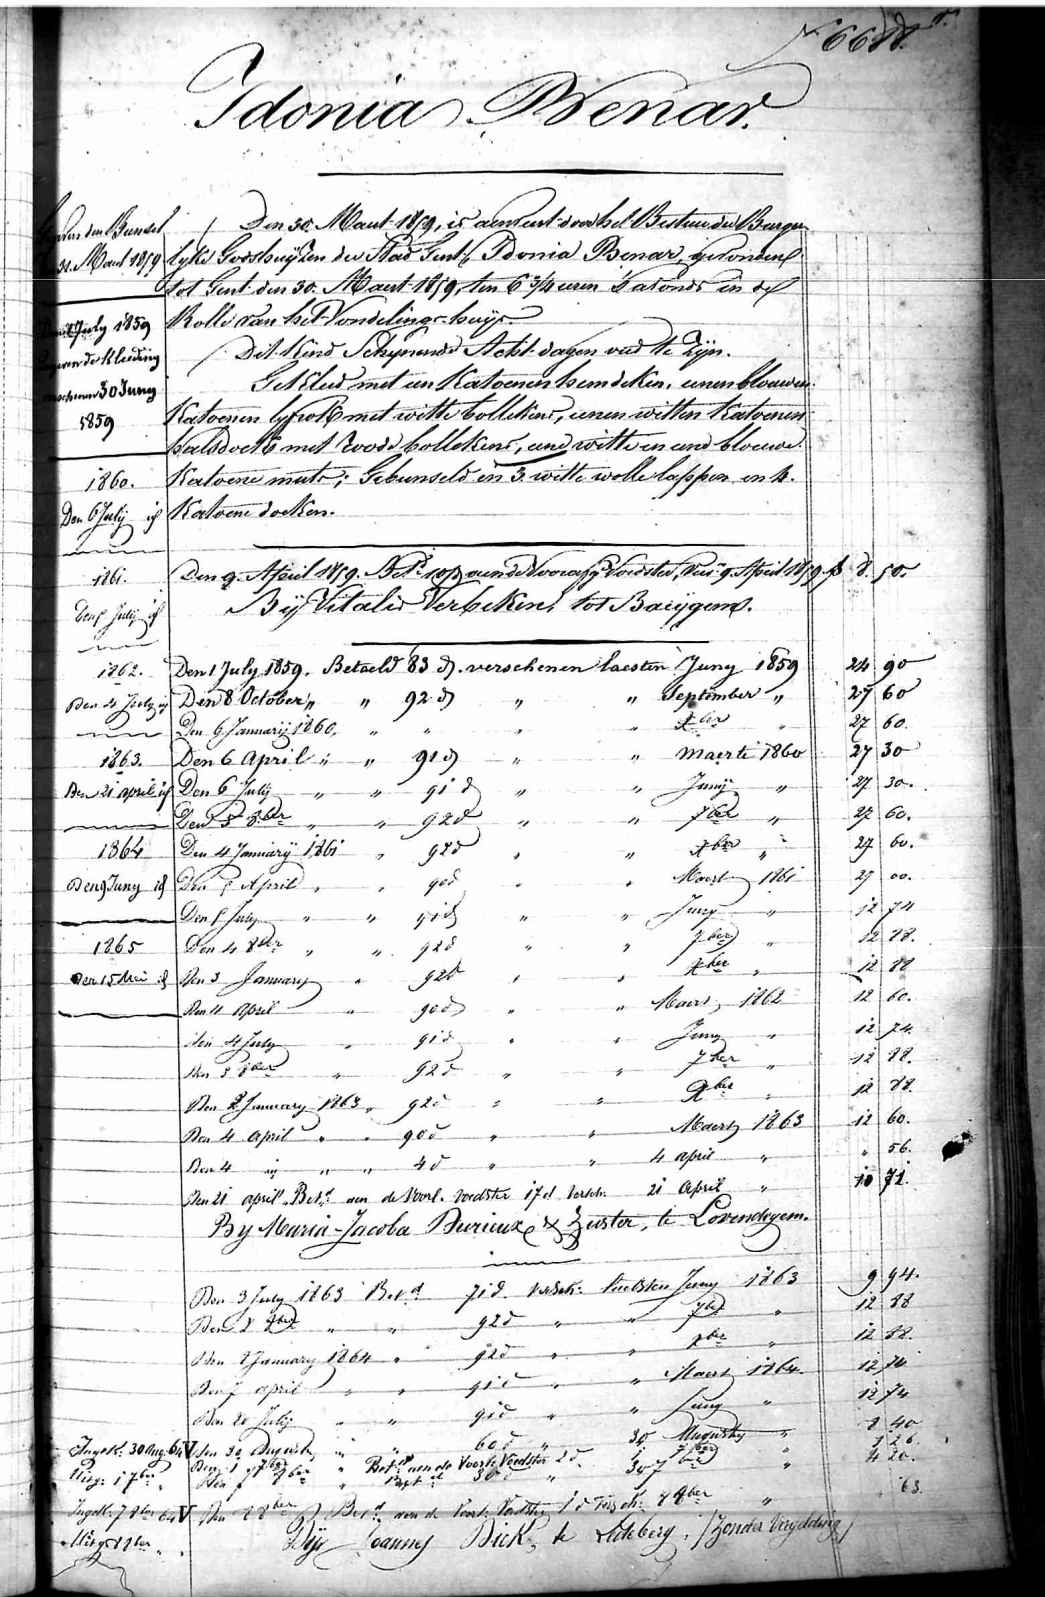 Idonia Benar.
Den 30. Maart 1859, is aenveirt door het Bestuur der Burger-
lyke Godshuyzen der Stad Gent, Idonia Benar, gevonden
tot Gent den 30. Maart 1859, ten 6 3/4 uren 's avonds in de
Rolle van het Vondelings-huys.
Dit Kind Schynende Acht dagen oud te zyn.
Gekleed met een Katoenen hemdeken, eenen blouwen
Katoenen lyfrok met witte bollekens, eenen witten Katoenen
halsdoek met roode bollekens, eene witte en eene blouwe
Katoene muts; Gebunseld in 3. witte wolle lappen en 4.
Katoene doeken.
31. Maart 1859
July 1859
Kleeding
30 Juny
1859
1860.
Den 6 July id
1861.
July id
1862.
Den 4 July id
1863.
Den 21 april id
1864
Den 9 Juny id
1865
Den 15 Mei id
Den 9. April 1859. Voedster, 9. April 1859 50.
By Vitalis Verbeken, tot Baeygem.
Den 1 July 1859. Betaeld 83 d. verschenen laesten Juny 1859 24 90
Den 8 October " " 92 d " " September " 27 60
Den 6 January 1860. " " " " Xber " 27 60.
Den 6 April " " 91 d " " Maerte 1860 27 30
Den 6 July " " 91 d " " Juny " 27 30.
Den 5 8ber " " 92 d " " 7ber " 27 60.
Den 4 January 1861 " 92 d " " Xber " 27 60.
Den April " " 90 d " " Maert 1861 27 00.
Den July " " 91 d " " Juny " 12 74
Den 4 8ber " " 92 d " " 7ber " 12 88.
Den 3 January " 92 d " " Xber " 12 88
Den 4 April " 90 d " " Maert 1862 12 60.
Den 4 July " 91 d " " Juny " 12 74.
Den 3 8ber " 92 d " " 7ber " 12 88.
Den 2 January 1863 " 92 d " " Xber " 12 88.
Den 4 April " " 90 d " " Maert 1863 12 60.
Den 4 " " 4 d " " 4 april " " 56.
Den 21 april Bet. aen de Voorl. Voedster 17 d Versch. 21 April " 10 71.
By Maria-Jacoba Durieux & Zuster, te Lovendegem.
Den 3 July 1863 Bet.d 71 d. Versch. laetsten Juny 1863 9 94.
Den 2 8ber " " 92 d " " 7ber " 12 88
Den 2 January 1864 " 92 d " " Xber " 12 88.
Den 7 april " " 91 d " " Maert 1864. 12 74
Den 20 July " " 91 d " " Juny " 12 74
Ingek: 30 Aug: 64 V Den 30 Augusty " " 60 d " 30 Augusty " 8 40
Uitg: 1 7ber " Den 1 7ber " Bet.d aen de Voorl: Voedster 2 d 1 26
Den 8ber " 30 d 30 7ber " 4 20.
Ingek: 7 8ber 64 V Den 8ber " Bet.d aen de Voorl: Voedster 1 d Versch. 8ber " " 63.
Uitg: 8ber "
By Joannes Dick, te Ledeberg. /Zonder Vergelding/